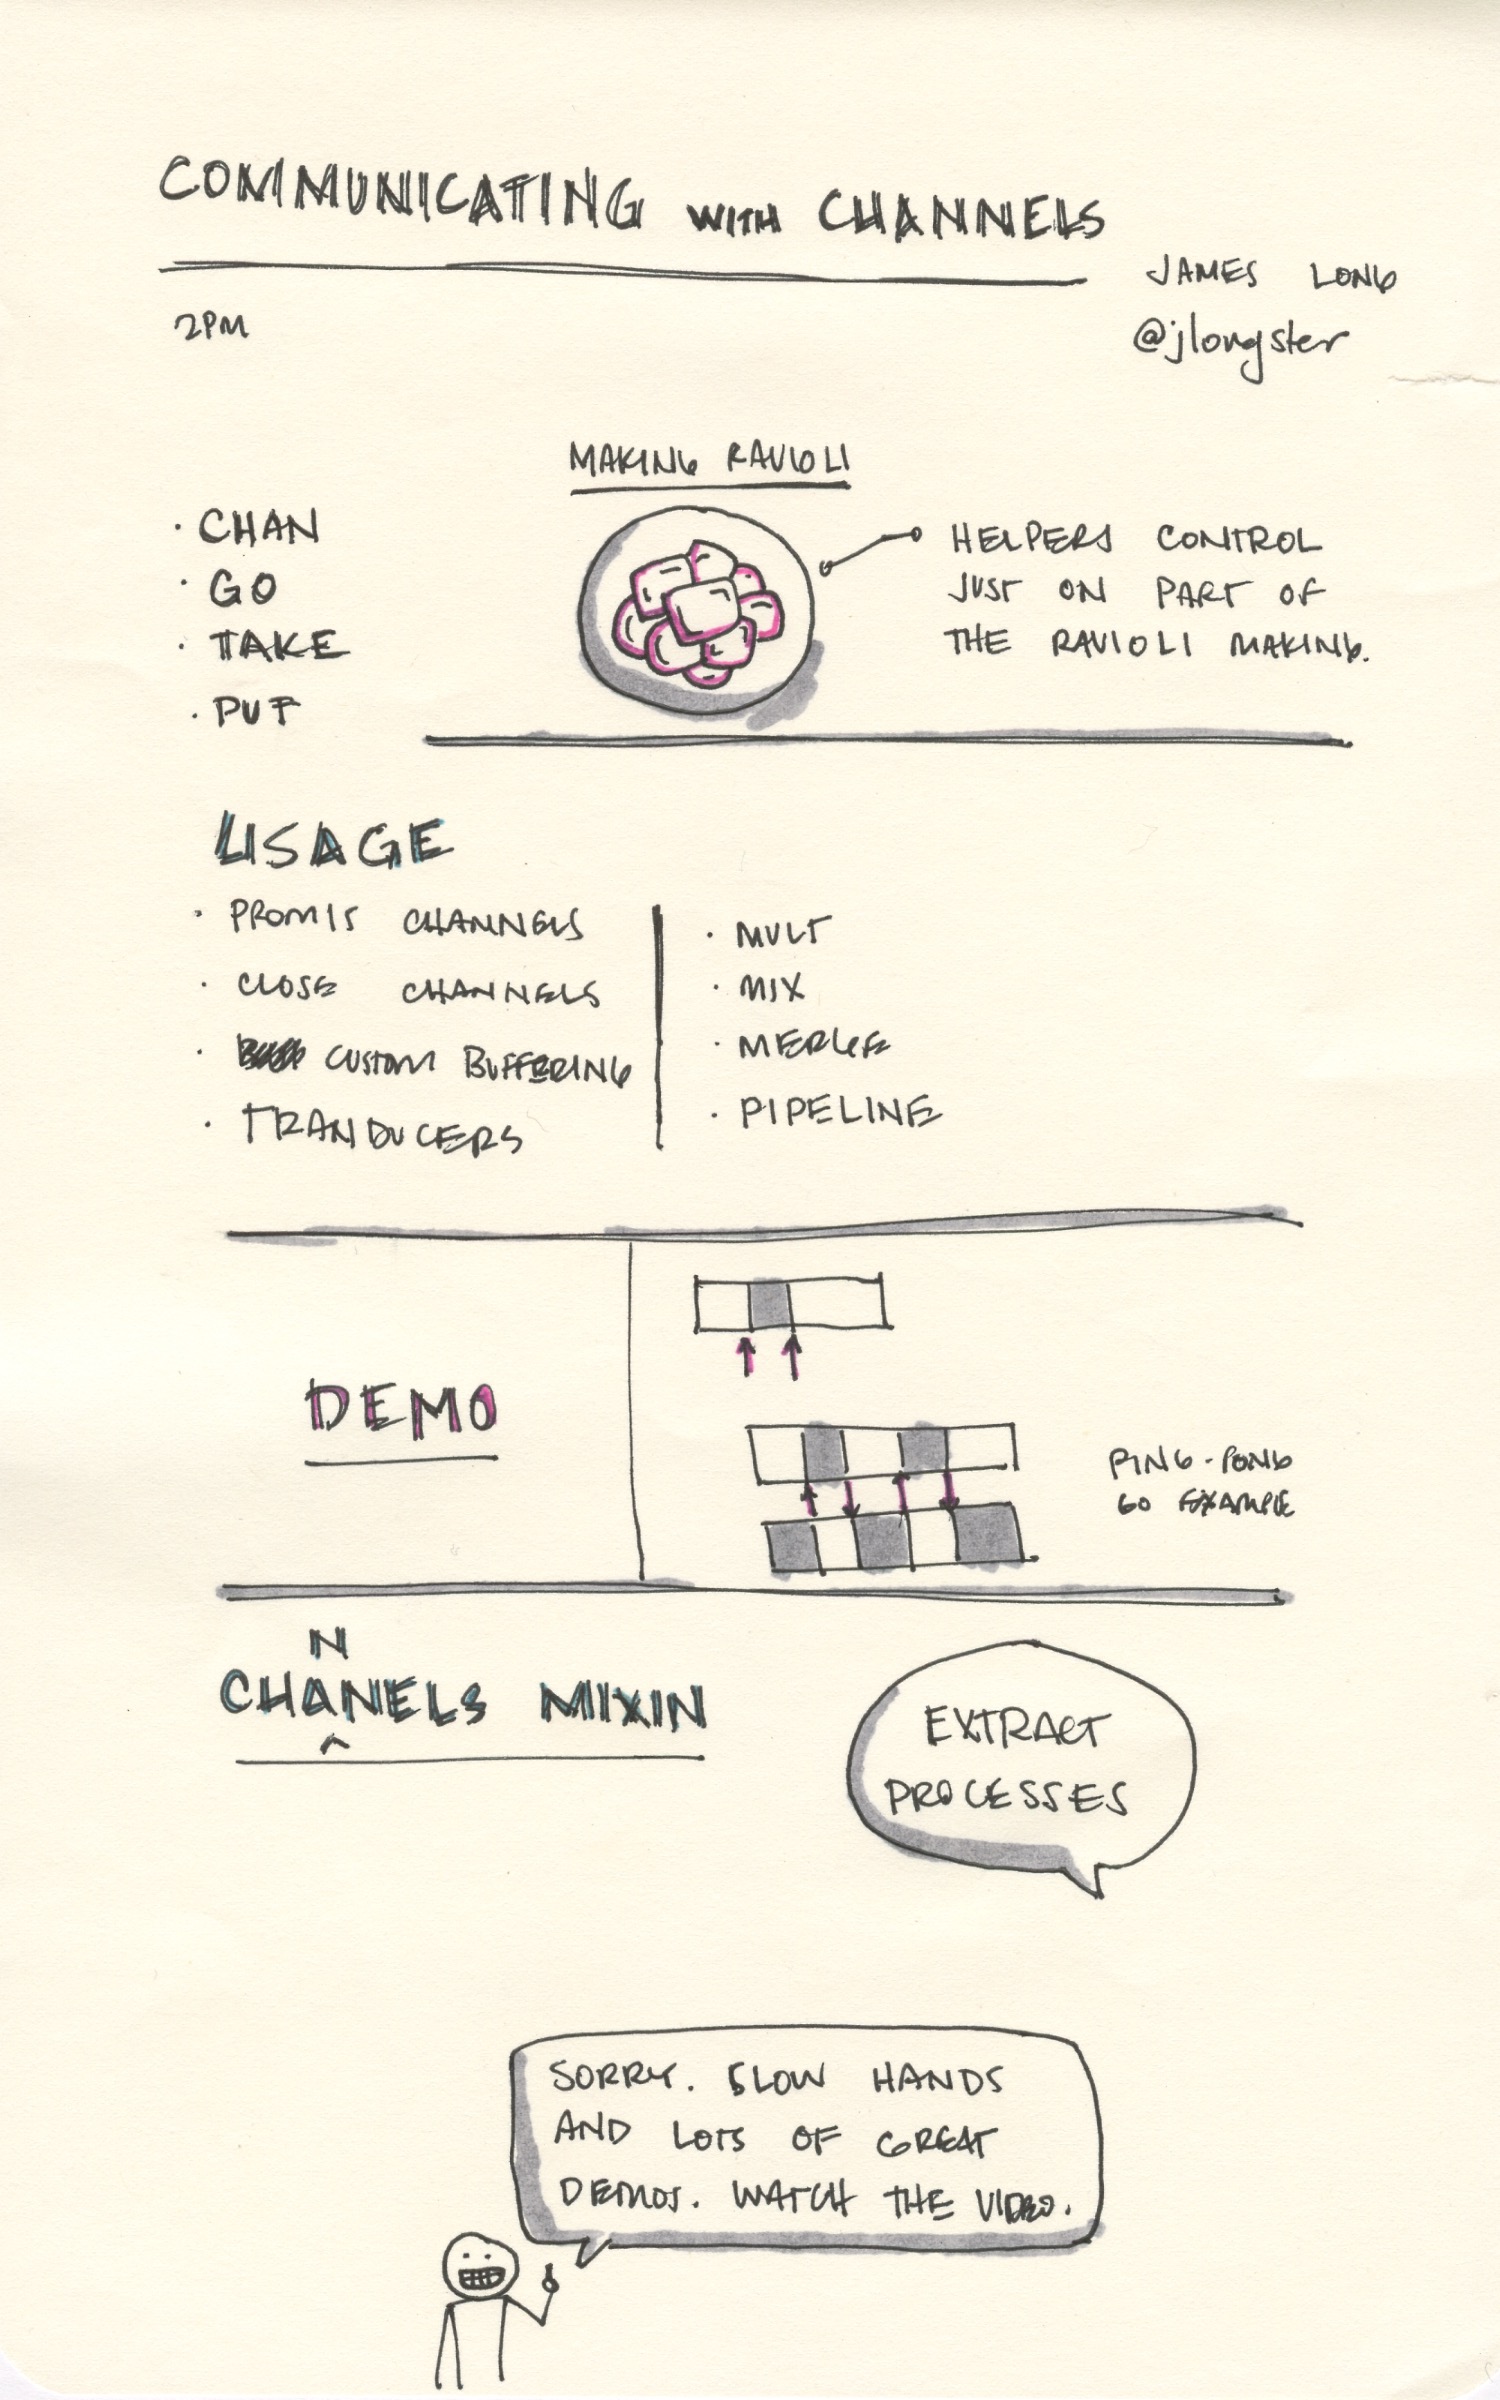 COMMUNICATING WITH CHANNELS
JAMES LONG
@jlongster
2PM
MAKING RAVIOLI
· CHAN
· GO
· TAKE
· PUT
HELPERS CONTROL
JUST ON PART OF
THE RAVIOLI MAKING.
USAGE
· PROMIS CHANNELS
· CLOSE CHANNELS
· CUSTOM BUFFERING
· TRANDUCERS
· MULT
· MIX
· MERGE
· PIPELINE
DEMO
PING-PONG
GO EXAMPLE
N
CHANELS MIXIN
^
EXTRACT
PROCESSES
SORRY. SLOW HANDS
AND LOTS OF GREAT
DEMOS. WATCH THE VIDEO.